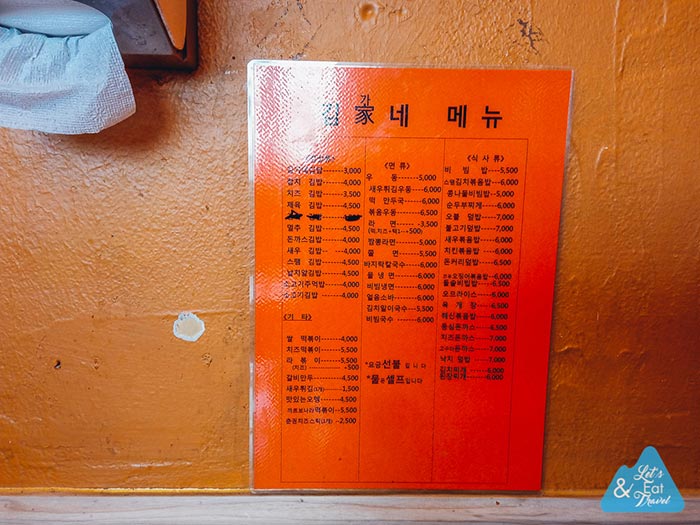 김家네 메뉴
가
참치 김밥-------4,000
치즈 김밥-------3,500
제육 김밥-------4,500
멸추 김밥-------4,000
돈까스김밥------4,500
새우 김밥-- ----4,000
스팸 김밥-------4,500
소고기주먹밥----4,000
<기 타>
쌀 떡볶이-------4,000
치즈떡볶이------5,500
라 볶 이--------5,500
(치즈) ------------500
갈비만두--------4,500
새우튀김(1개)-----1,500
맛있는오뎅------4,500
까르보나라떡볶이---5,500
춘권치즈스틱(1개) ---2,500
<면 류>
우 동-------5,000
새우튀김우동----6,000
떡 만두국-------6,000
볶음우동--------6,500
라 면 ------3,500
(떡,치즈+떡1---+500)
짬뽕라면--------5,000
쫄 면-------5,000
바지락칼국수----6,000
물 냉 면--------6,000
비빔냉면--------6,000
얼음소바--------6,000
김치말이국수----5,500
비빔국수 -------6,000
*요금선불 입니다
*물은셀프입니다
<식 사 류>
비 빔 밥-----5,500
스팸김치볶음밥---6,000
콩나물비빔밥----5,500
순두부찌개------6,000
오불 덮밥-------7,000
불고기덮밥------7,000
새우볶음밥------6,000
치킨볶음밥------6,000
돈커리덮밥------6,500
오징어볶음밥---6,000
돌솥비빔밥------6,500
오므라이스------6,000
육 개 장--------6,500
해신볶음밥------6,000
등심돈까스------6,500
치즈돈까스------7,000
고구마돈까스-----7,000
낙지 덮밥 ------7,000
김치찌개 -------6,000
된장찌개--------6,000
Let's
& Eat
Travel